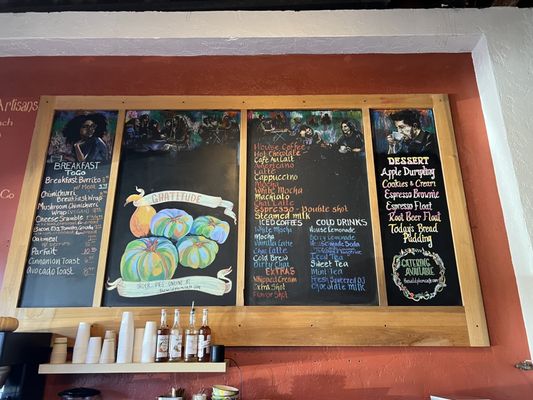 Artisans
Co
BREAKFAST
TOGO
Breakfast Burrito
Chimichurri
Breakfast Wrap
Mushroom Chimichurri
Wrap
Cheese Scramble
Bacon, Egg, Tomato, Gouda
Oatmeal
Parfait
Cinnamon Toast
Avocado Toast
GRATITUDE
ORDER PIES ONLINE @
House Coffee
Hot Chocolate
Cafe Au Lait
Americano
Latte
Cappuccino
Mocha
White Mocha
Macchiato
Chai Latte
Espresso - Double Shot
Steamed milk
ICED COFFEES
White Mocha
Mocha
Vanilla Latte
Chai Latte
Cold Brew
Dirty Chai
EXTRAS
Whipped Cream
Extra Shot
Flavor Shot
COLD DRINKS
House Lemonade
Berry Lemonade
House-made Soda
Iced Tea
Sweet Tea
Mint Tea
Fresh Squeezed OJ
Chocolate Milk
DESSERT
Apple Dumpling
Cookies & Cream
Espresso Brownie
Espresso Float
Root Beer Float
Today's Bread
Pudding
CATERING
AVAILABLE